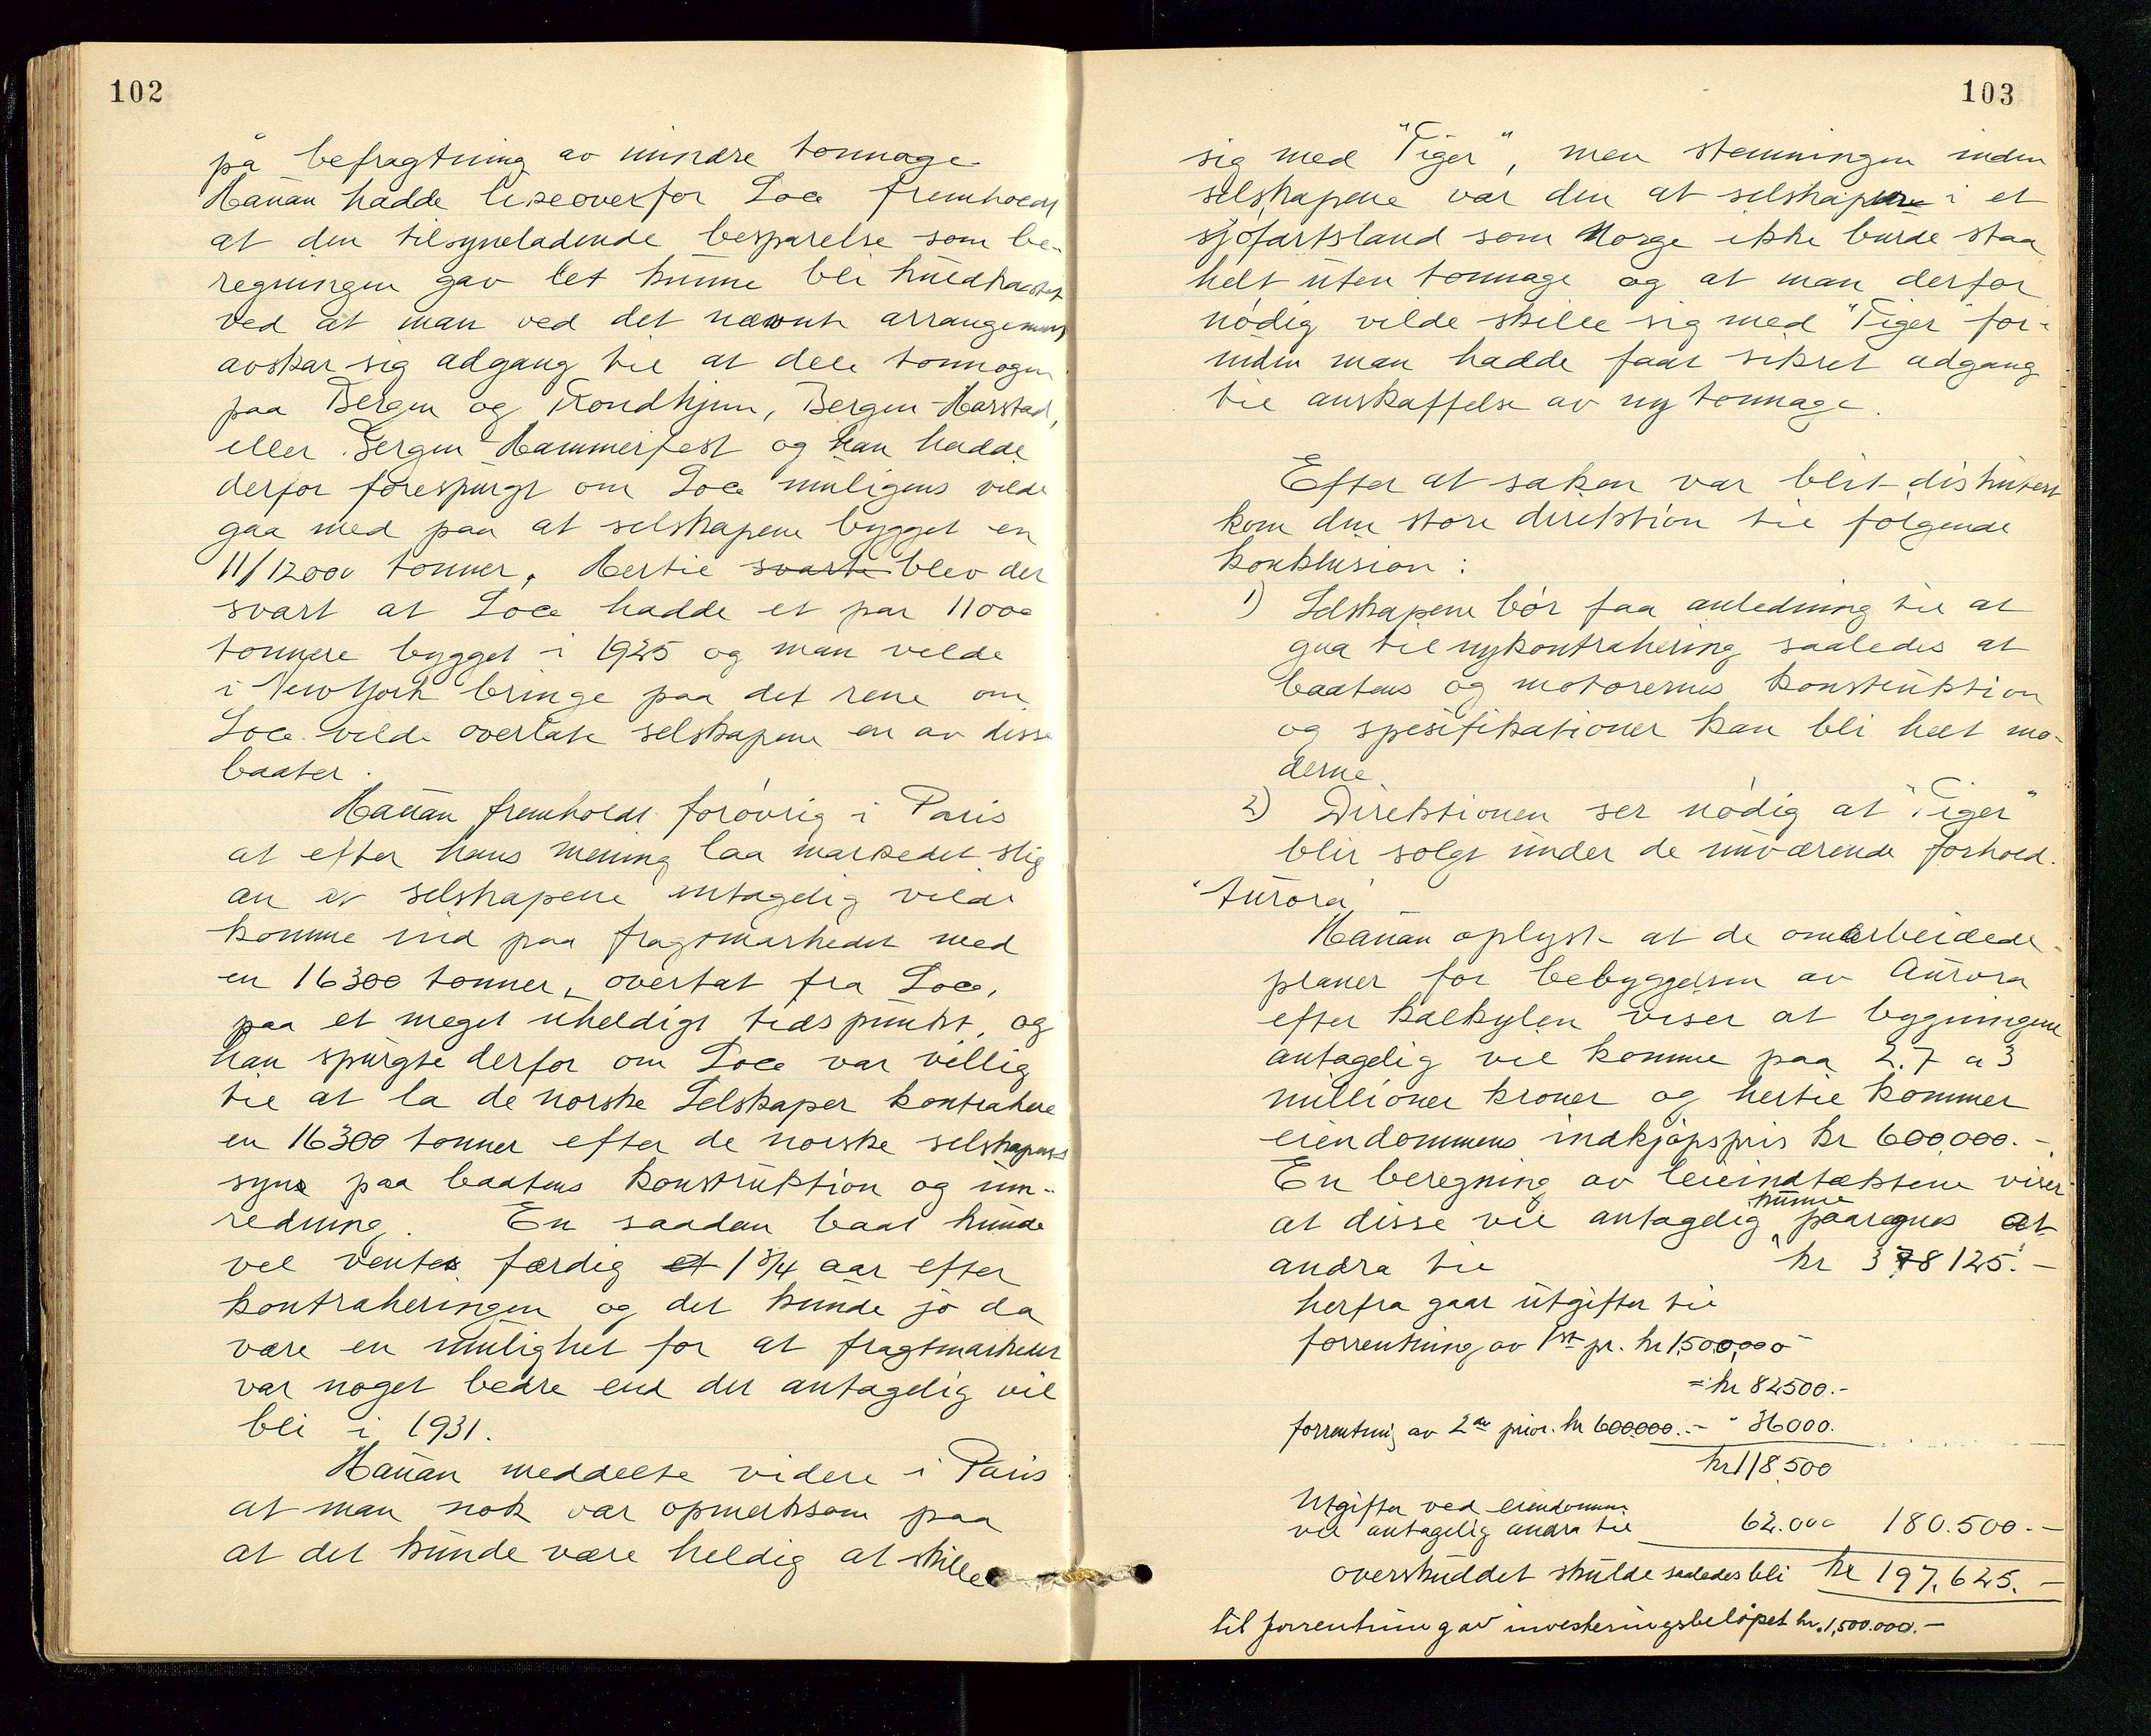 102
på befragtning av mindre tonnage.
Hanan hadde likeoverfor Soca fremholdt
at den tilsyneladende besparelse som be-
regningen gav let kunne bli kuldkastet
ved at man ved det nævnte arrangement
avskar sig adgang til at dele tonnagen
paa Bergen og Trondhjem, Bergen-Harstad,
eller Bergen-Hammerfest og han hadde
derfor forespurgt om Soca muligens vilde
gaa med paa at selskapene bygget en
11/12000 tonner. Hertil svarte blev der
svart at Soca hadde et par 11000
tonnere bygget i 1925 og man vilde
i New York bringe paa det rene om
Soca vilde overlate selskapene en av disse
baater.
Hanan fremholdt forøvrig i Paris
at efter hans mening laa markedet slig
an at selskapene antagelig vilde
komme ind paa fragtmarkedet med
en 16300 tonner, overtat fra Soca,
paa et meget uheldigt tidspunkt, og
han spurgte derfor om Soca var villig
til at la de norske Selskaper kontrahere
en 16300 tonner efter de norske selskapers
syns paa baatens konstruktion og inn-
redning. En saadan baat kunde
vel ventes færdig et 1 3/4 aar efter
kontraheringen og det kunde jo da
være en mulighet for at fragtmarkedet
var noget bedre end det antagelig vil
bli i 1931.
Hanan meddelte videre i Paris
at man nok var opmerksom paa
at det kunde være heldig at skille
103
sig med "Tiger", men stemningen inden
selskapene var den at selskapene i et
sjøfartsland som Norge ikke burde staa
helt uten tonnage og at man derfor
nødig vilde skille sig med "Tiger" for-
inden man hadde faat sikret adgang
til anskaffelse av ny tonnage.
Efter at saken var blit diskutert
kom den store direktion til følgende
konklusion:
1) Selskapene bør faa anledning til at
gaa til nykontrahering saaledes at
baatens og motorernes konstruktion
og spesifikationer kan bli helt mo-
derne
2) Direktionen ser nødig at "Tiger"
blir solgt under de nuværende forhold.
"Aurora"
Hanan oplyste at de omarbeidede
planer for bebyggelsen av Aurora
efter kalkylen viser at bygningene
antagelig vil komme paa 2.7 a 3
millioner kroner og hertil kommer
eiendommens indkjøpspris kr 600,000.-
En beregning av leieindtektene viser
at disse vil antagelig kunne paaregnes at
andra til kr 378125.-
herfra gaar utgifter til
forrentning av 1st pr. kr 1,500,000-
= kr 82500.-
forrentning av 2den prior. kr 600.000.- " 36000.
kr 118.500
Utgifter ved eiendommen
vil antagelig andra til 62.000 180.500.-
overskuddet skulde saaledes bli kr 197.625.-
til forrentning av investeringsbeløpet kr. 1,500.000.-